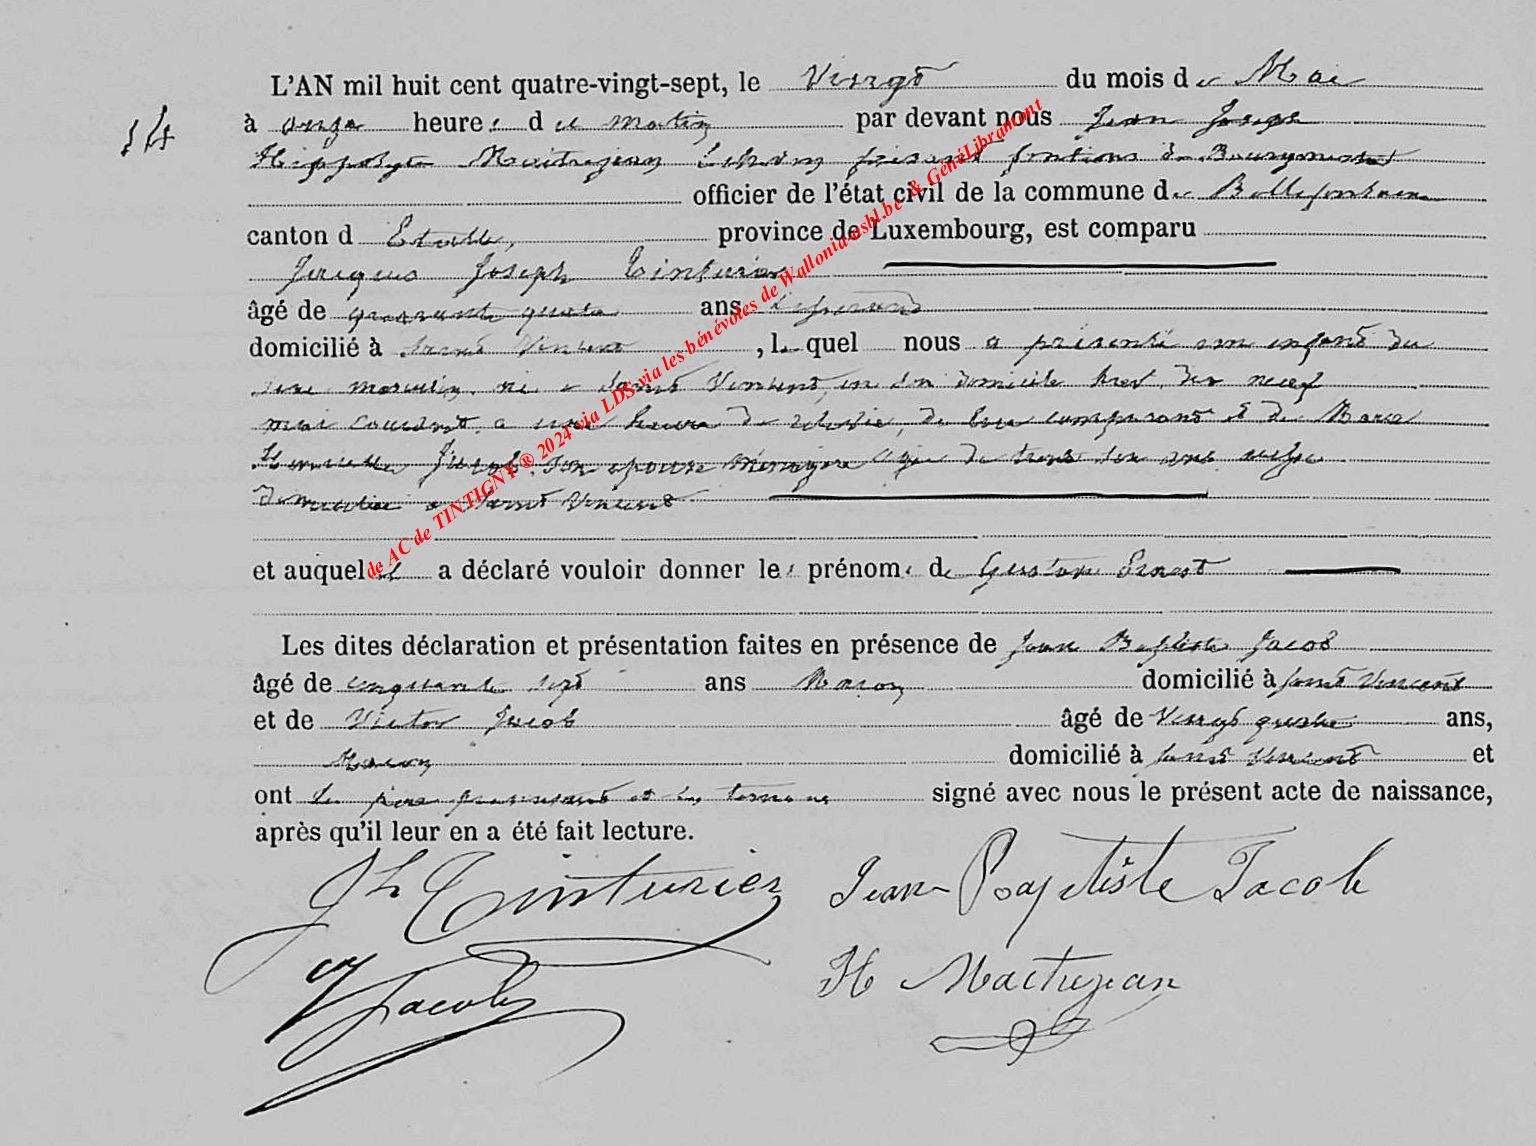 L'AN mil huit cent quatre-vingt-sept, le Vingt du mois de Mai
14
à onze heures du matin par devant nous Jean Joseph
Hippolyte Maitrejean Echevin faisant fonctions de Bourgmestre
officier de l'état civil de la commune de Bellefontaine
canton d Etalle, province de Luxembourg, est comparu
Jacques Joseph Tinturier
âgé de quarante quatre ans
domicilié à Saint Vincent, lequel nous a présenté un enfant du
sexe masculin né à Saint Vincent, en son domicile hier dix neuf
mai courant, à une heure de relevée, de lui comparant et de Marie
Jacob son épouse Ménagère âgée de trente ans
domiciliée à Saint Vincent
et auquel il a déclaré vouloir donner les prénoms de Gustave Ernest
Les dites déclaration et présentation faites en présence de Jean Baptiste Jacob
âgé de cinquante sept ans Maçon domicilié à Saint Vincent
et de Victor Jacob âgé de Vingt quatre ans,
Maçon domicilié à Saint Vincent et
ont le père et les témoins signé avec nous le présent acte de naissance,
après qu'il leur en a été fait lecture.
Jh Tinturier Jean-Baptiste Jacob
V Jacob H Maitrejean
de AC de TINTIGNY ® 2024 via LDS via les bénévoles de Wallonia-asbl.be & GénéLibramont